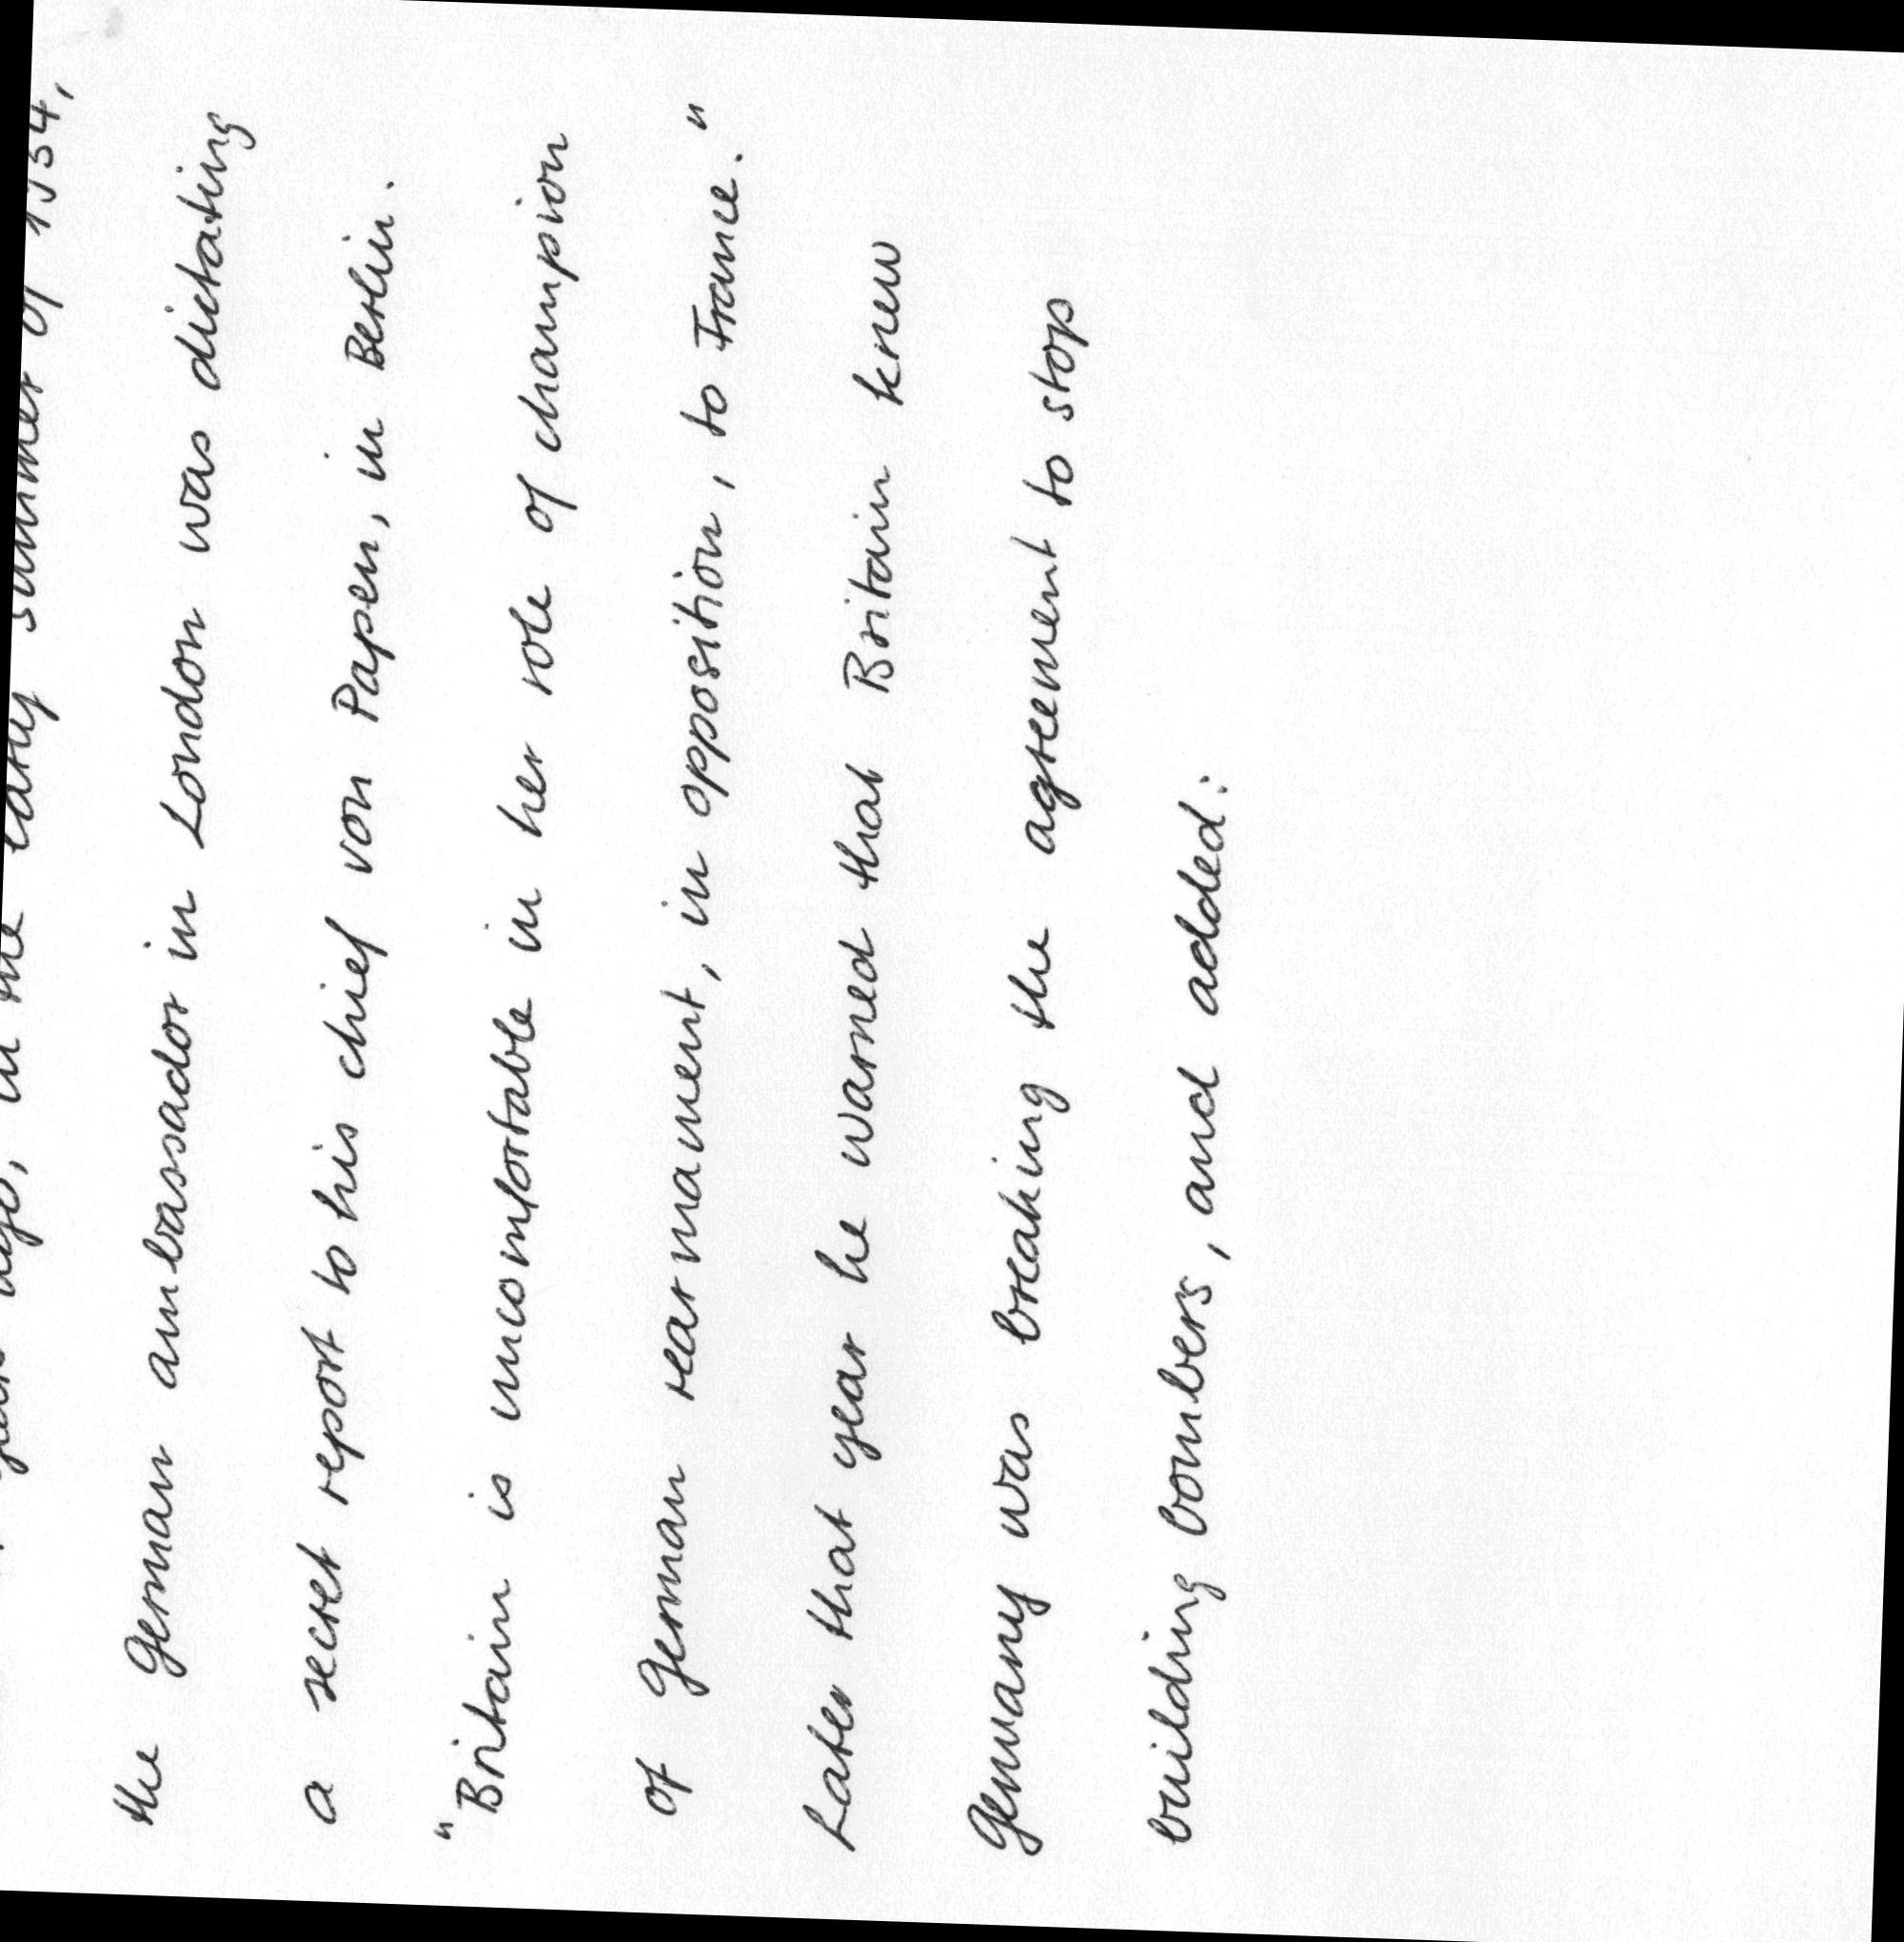 ago, in the early summer of 1934,
the German ambassador in London was dictating
a secret report to his chief von Papen, in Berlin.
"Britain is uncomfortable in her role of champion
of German rearmament, in opposition, to France."
Later that year he warned that Britain knew
Germany was breaking the agreement to stop
building bombers, and added: